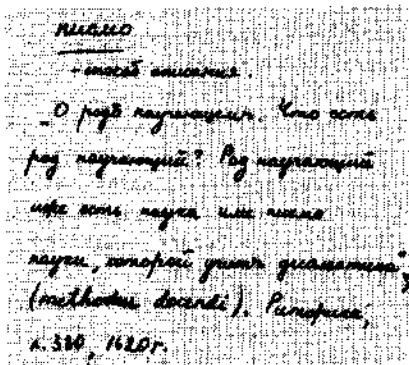 письмо
- способ описания.
„О родѣ научающемъ. Что есть
род научающий? Род научающий
иже есть наука или письмо
науки, которой учитъ диалектика"
(methodus docendi). Риторика,
л. 380, 1620 г.